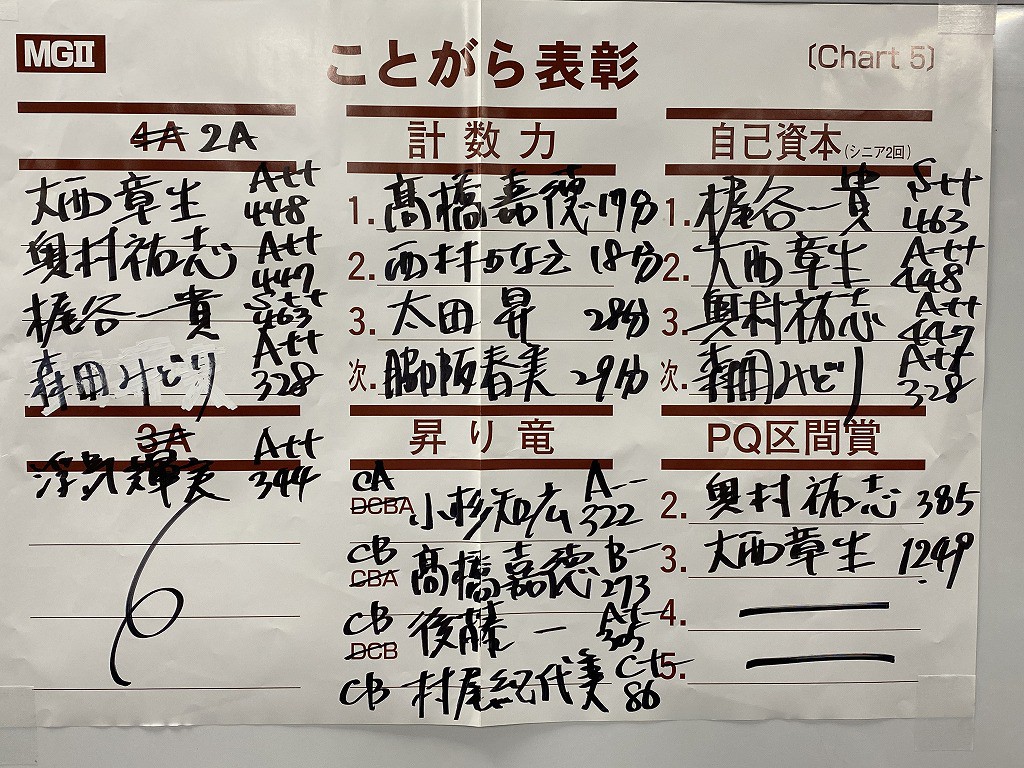 MGⅡ
ことがら表彰
〔Chart 5〕
4A 2A
大西章生 A++ 448
奥村祐志 A++ 447
梶谷一貴 S++ 463
森田みどり A++ 328
3A
浮気輝実 A++ 344
計数力
1. 髙橋嘉德 17分
2. 西村かなえ 18分
3. 太田昇 28分
次. 脇阪春美 29分
昇り竜
CA
DCBA 小杉知広 A-- 322
CB
CBA 髙橋嘉德 B-- 273
CB
DCB 後藤一 A+- 305
CB 村尾紀代美 C+- 86
自己資本(シニア2回)
1. 梶谷一貴 S++ 463
2. 大西章生 A++ 448
3. 奥村祐志 A++ 447
次. 森田みどり A++ 328
PQ区間賞
2. 奥村祐志 385
3. 大西章生 1249
4.
5.